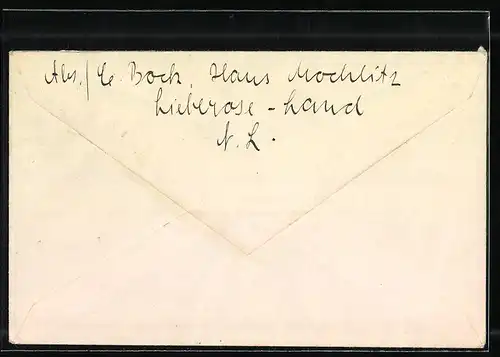 Abs./ E. Bock, Haus Mochlitz
Lieberose - Land
N. L.